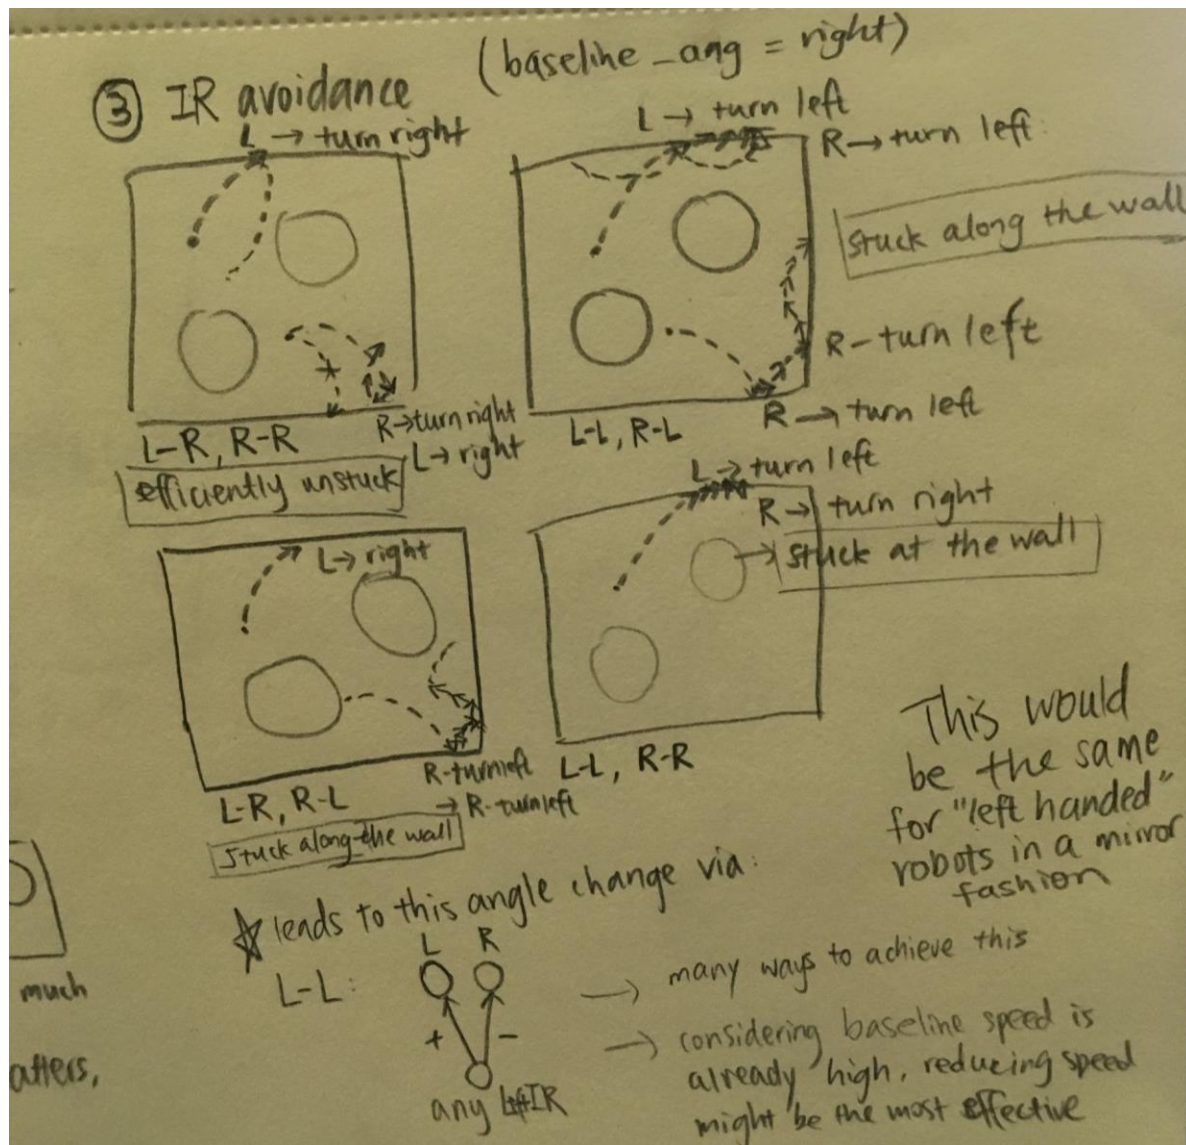 ③ IR avoidance (baseline_ang = right)
L → turn right
R → turn right
L → right
L-R, R-R
efficiently unstuck
L → turn left
R → turn left
stuck along the wall
R - turn left
R → turn left
L-L, R-L
L → right
R - turn left
→ R - turn left
L-R, R-L
stuck along the wall
L → turn left
R → turn right
→ stuck at the wall
L-L, R-R
This would
be the same
for "left handed"
robots in a mirror
fashion
☆ leads to this angle change via:
L-L:
L R
+ -
any Left IR
→ many ways to achieve this
→ considering baseline speed is
already high, reducing speed
might be the most effective
much
atters,